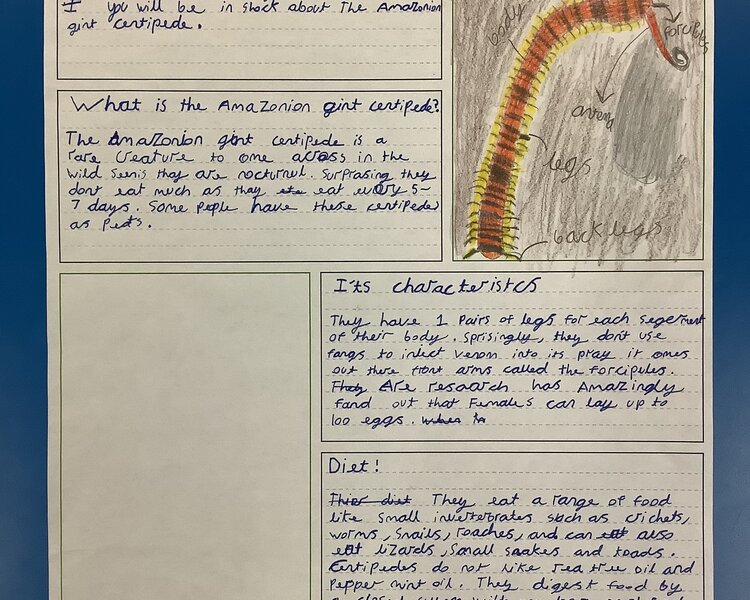 I you will be in shock about The Amazonion
gint centipede.
body
forcibles
antena
legs
back legs
What is the Amazonion gint centipede?
The Amazonion gint centipede is a
rare Creature to ome across in the
wild Senis thay are nocturnul. Surprasing they
dont eat much as thay eat every 5-
7 days. Some Peple have these centipedes
as Peats.
I'ts characteristcs
They have 1 Pairs of legs for each segerment
of their body. Sprisingly, they don't use
fangs to infect Venom into its pray it omes
out there front arms called the forcipules.
Are research has Amazingly
fand out that Females can lay up to
100 eggs.
Diet!
They eat a range of food
like small invertebrates sbch as crichets,
worms, Snails, roaches, and can also
eat lizards, Small snakes and toads.
Centipedes do not like rea tree oil and
Pepper mint oil. They digest food by